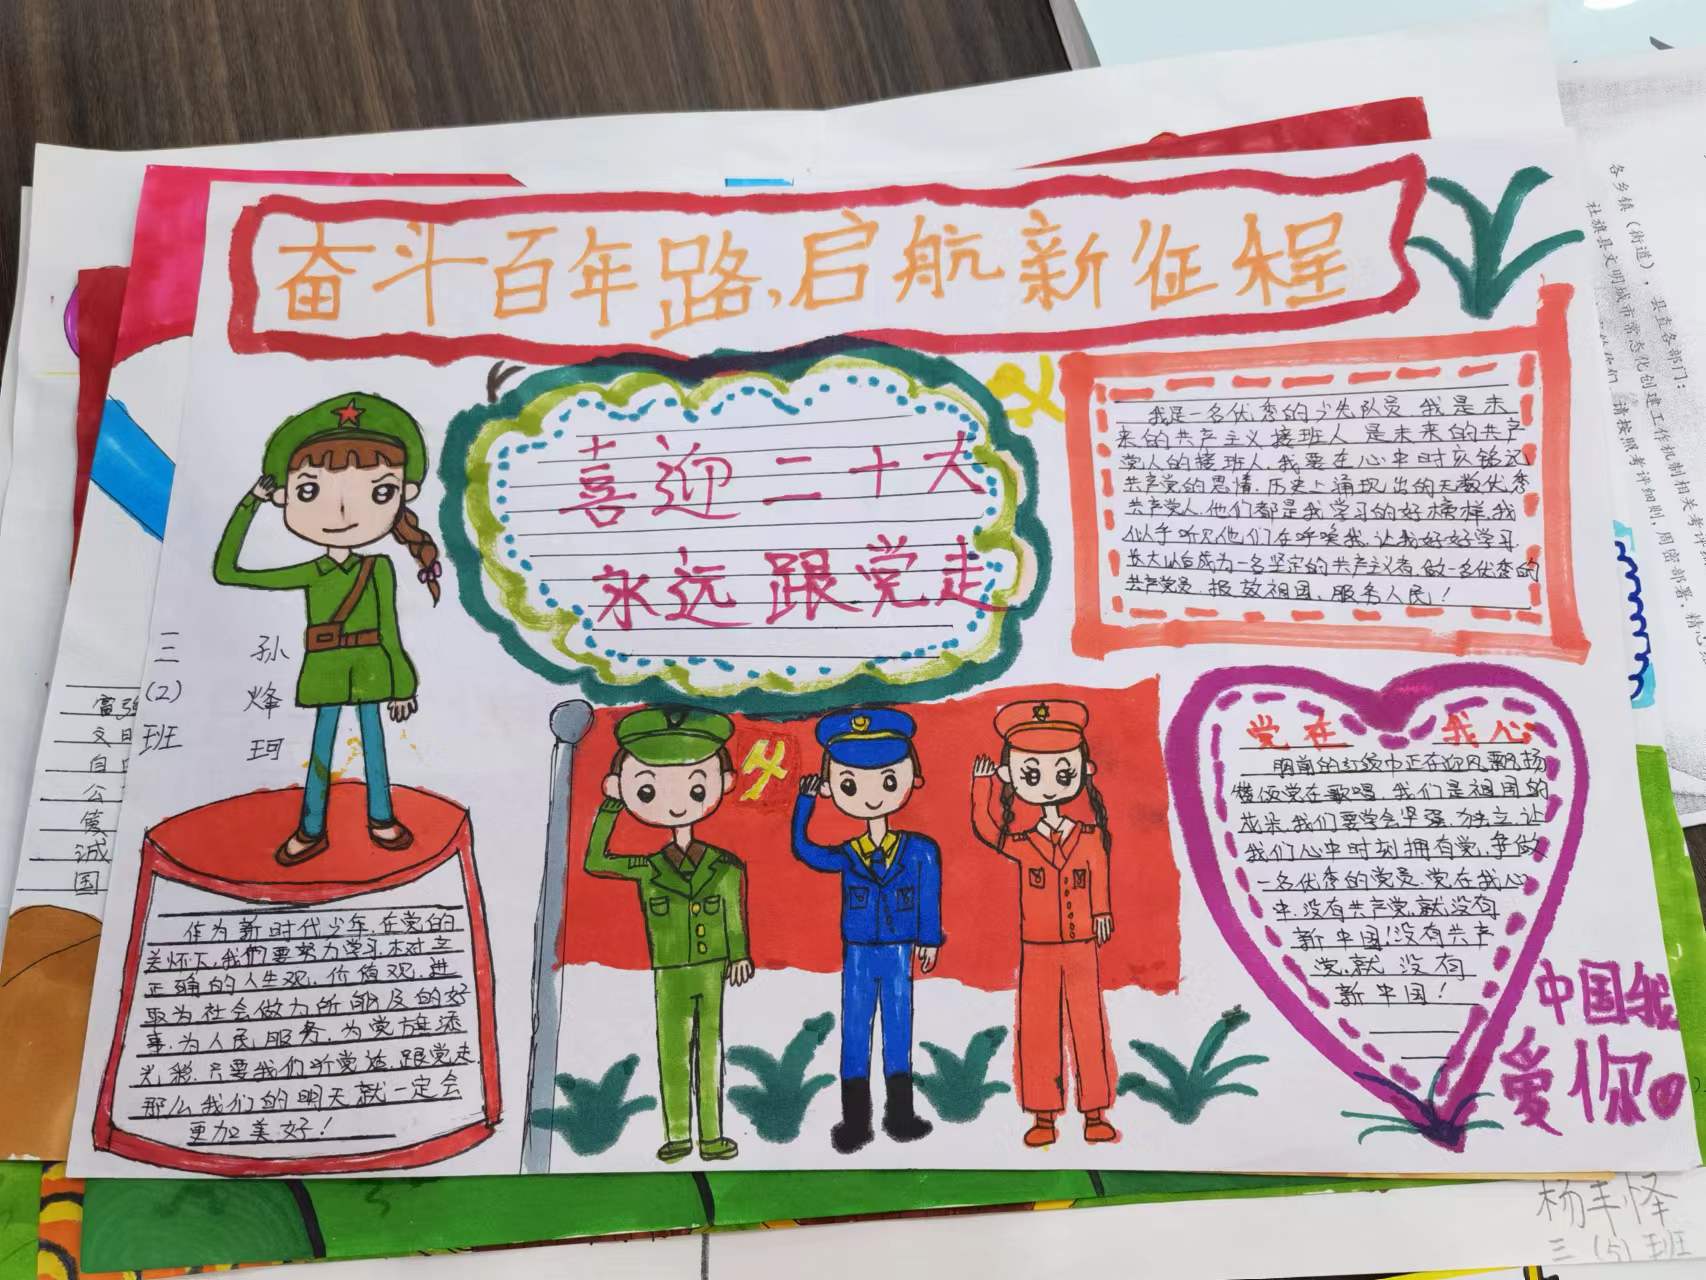 奋斗百年路,启航新征程
喜迎二十大
永远跟党走
我是一名优秀的少先队员.我是未
来的共产主义接班人是未来的共产
党人的接班人.我要在心中时刻铭记
共产党的恩情.历史上涌现出的无数优秀
共产党人.他们都是我学习的好榜样.我
似乎听见他们在呼唤我.让我好好学习
长大以后成为一名坚定的共产主义者.做一名优秀的
共产党员.报效祖国.服务人民!
三(2)班
孙烽珂
作为新时代少年.在党的
关怀下.我们要努力学习.树立
正确的人生观.价值观.进
取为社会做力所能及的好
事.为人民服务.为党旗添
光彩.只要我们听党话.跟党走.
那么我们的明天就一定会
更加美好!
党在我心
胸前的红领巾正在迎风飘扬
赞颂党在歌唱.我们是祖国的
花朵.我们要学会坚强.独立.让
我们心中时刻拥有党.争做
一名优秀的党员.党在我心
中.没有共产党.就没有
新中国!没有共产
党.就没有
新中国!
中国我
爱你
各乡镇(街道),县直各部门:
社旗县文明城市常态化创建工作机制相关考评
请按照考评细则,周密部署,精心
富强
文明
自
公
爱
诚
国
杨丰怿
三(5)班